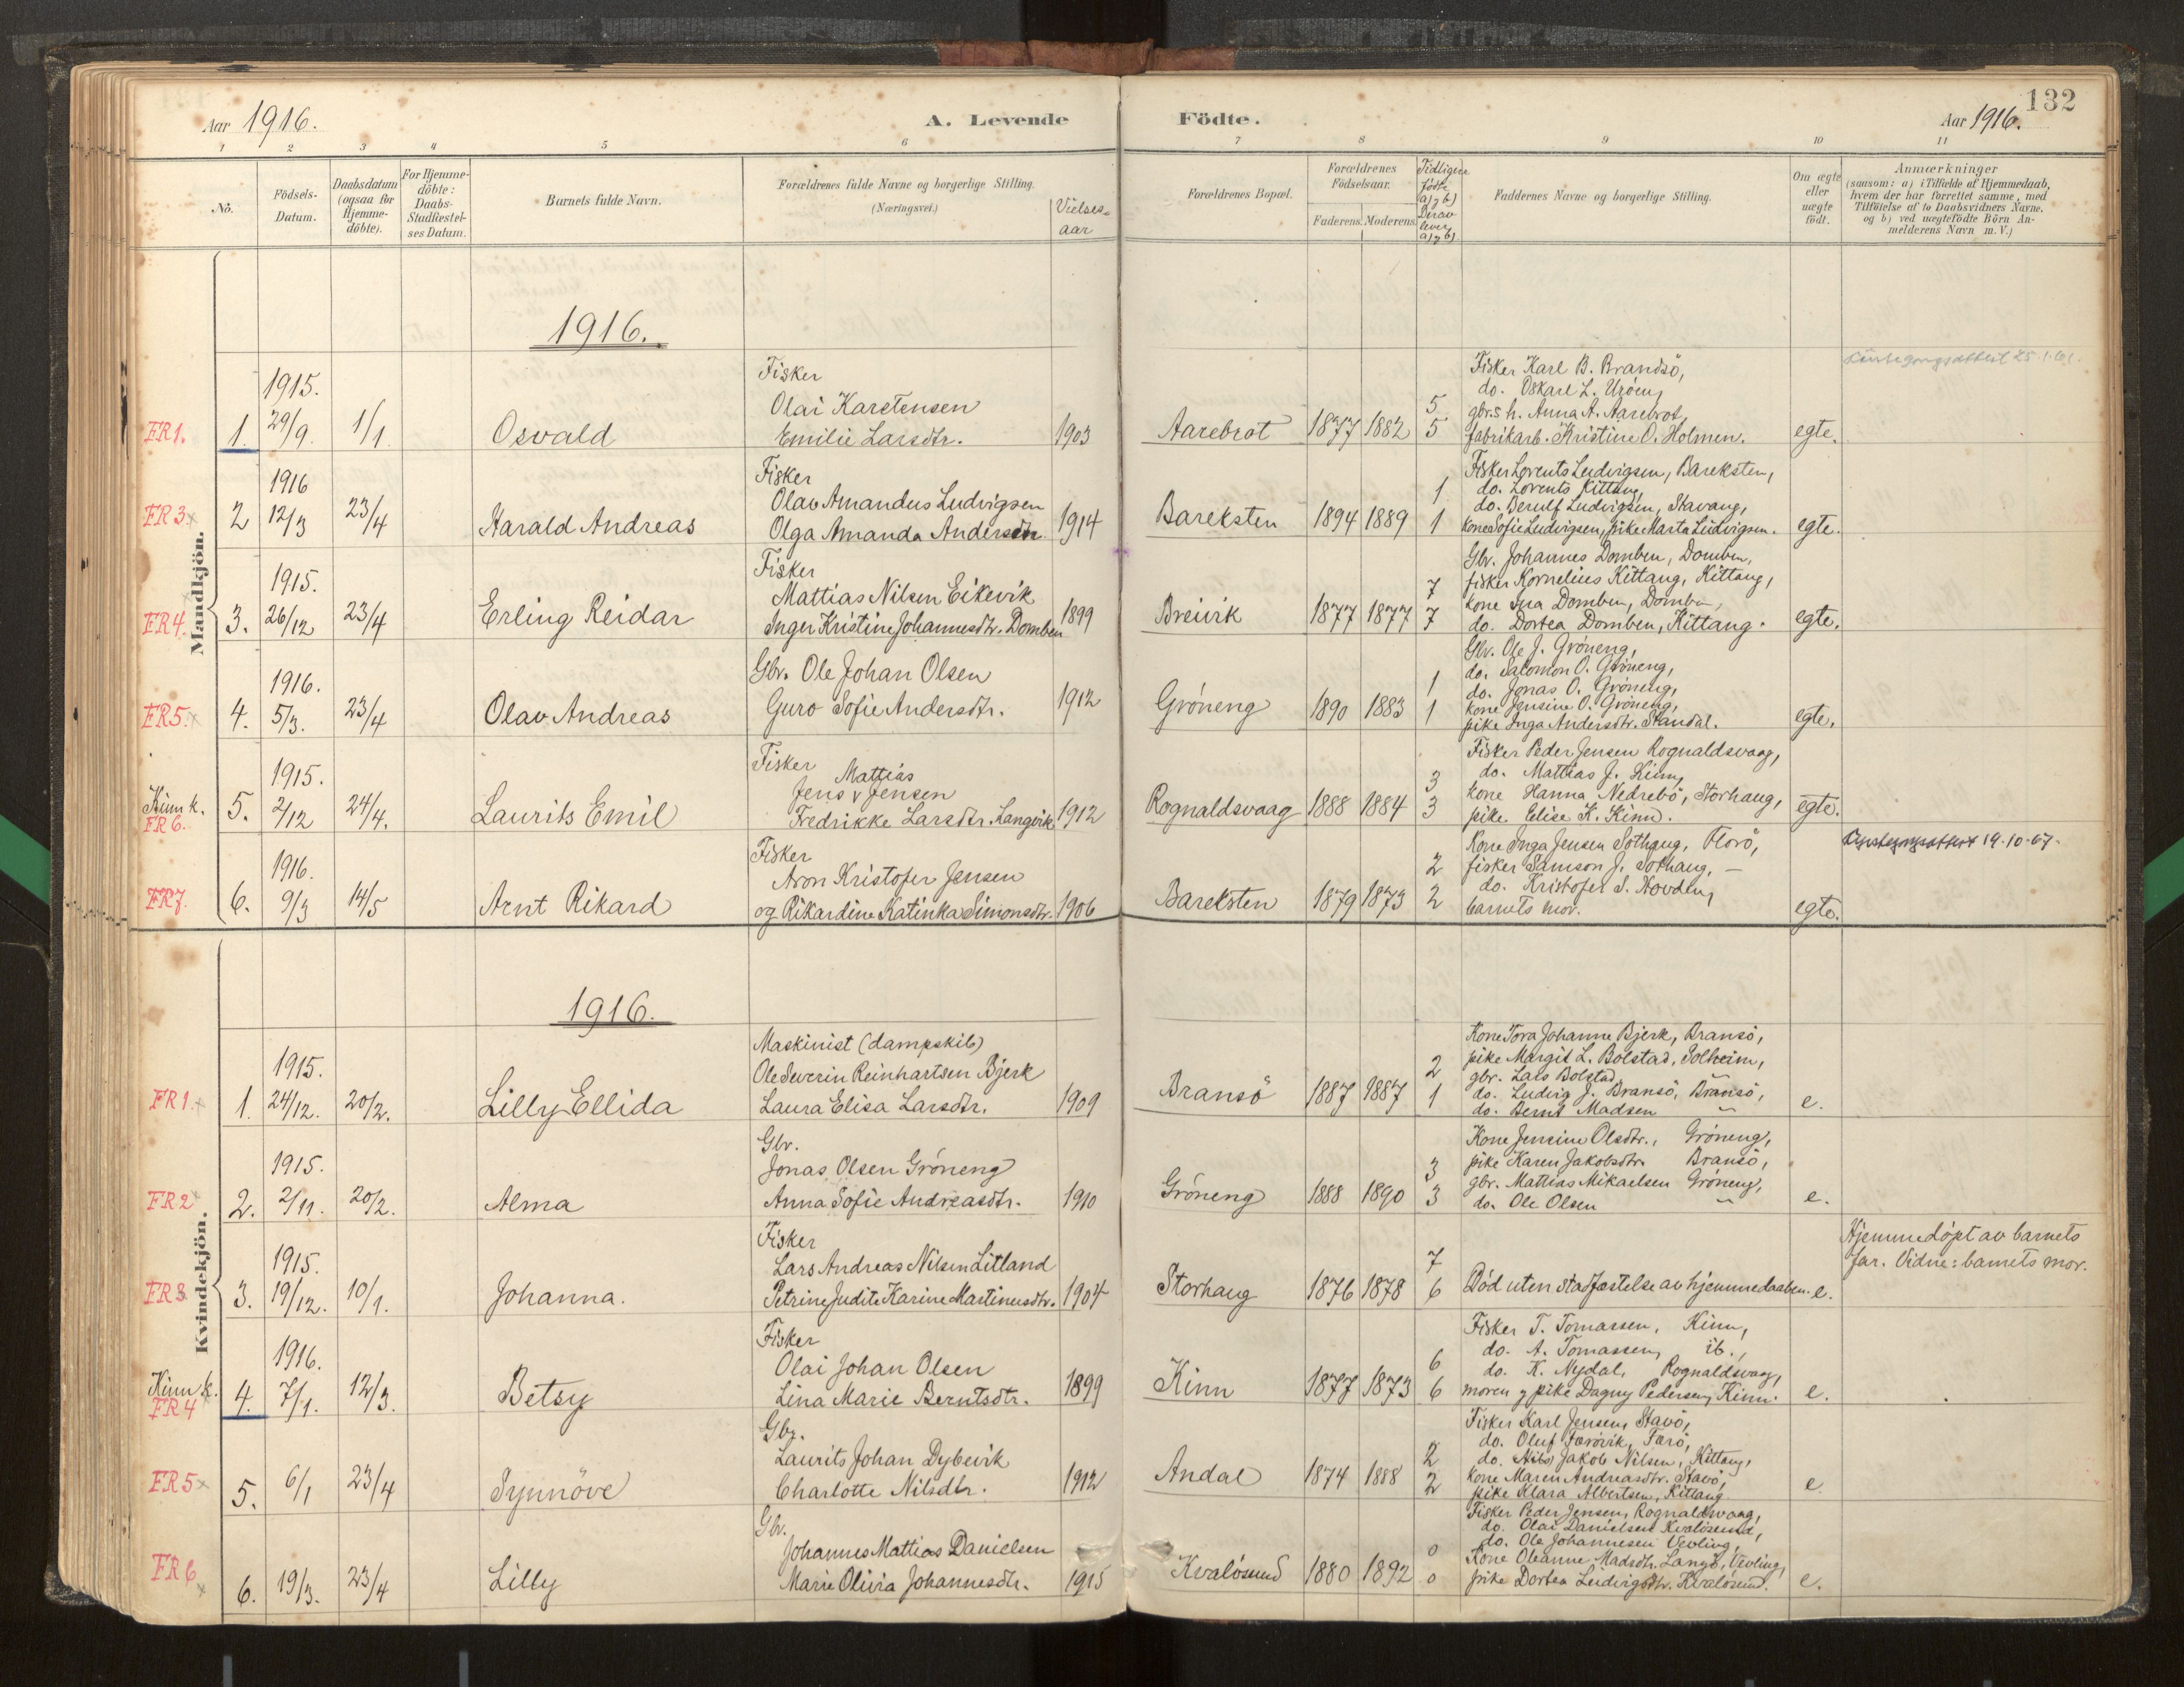 132
Aar 1916.
A. Levende Fødte.
Aar 1916.
1 2 3 4 5 6 7 8 9 10 11
No.
Födsels-
Datum.
Daabsdatum
(ogsaa for
Hjemme-
döbte).
For Hjemme-
döbte:
Daabs-
Stadfæstel-
ses Datum.
Barnets fulde Navn.
Forældrenes fulde Navne og borgerlige Stilling.
(Næringsvei.)
Vielses-
aar
Forældrenes Bopæl.
Forældrenes
Födselsaar.
Faderens. Moderens.
Tidligere
födte
a) og b)
Derav
lever
a) og b)
Faddernes Navne og borgerlige Stilling.
Om ægte
eller
uægte
födt.
Anmærkninger
(saasom: a) i Tilfælde af Hjemmedaab,
hvem der har forrettet samme, med
Tilföielse af to Daabsvidners Navne,
og b) ved uægtefödte Börn An-
melderens Navn m. V.)
Mandkjön.
1916.
FR1.
1.
1915.
29/9.
1/1.
Osvald
Fisker
Olai Karstensen
Emilie Larsdtr.
1903
Aarebrot
1877 1882
5
5
Fisker Karl B. Brandsö,
do. Oskarl L. Uröen,
gbr.s h. Anna A. Aarebrot,
fabrikarb. Kristine O. Holmen.
egte.
FR3
2
1916
12/3
23/4
Harald Andreas
Fisker
Olav Amandus Ludvigsen
Olga Amanda Andersdtr.
1914
Bareksten
1894 1889
1
1
Fisker Lorents Ludvigsen, Bareksten,
do. Lorents Kittang,
do. Berulf Ludvigsen, Stavang,
kone Sofie Ludvigsen, pike Marta Ludvigsen.
egte.
FR4.
3.
1915.
26/12
23/4
Erling Reidar
Fisker
Mattias Nilsen Eikevik
Inger Kristine Johannesdtr. Domben
1899
Breivik
1877 1877
7
7
Gbr. Johannes Domben, Domben,
fisker Kornelius Kittang, Kittang,
kone Ina Domben, Domben,
do. Dortea Domben, Kittang.
egte.
FR5.
4.
1916.
5/3.
23/4
Olav Andreas
Gbr. Ole Johan Olsen
Guro Sofie Andersdtr.
1912
Gröneng
1890 1883
1
1
Gbr. Ole J. Gröneng,
do. Salomon O. Gröneng,
do. Jonas O. Gröneng,
kone Jensine O. Gröneng,
pike Inga Andersdtr. Standal.
egte.
Kinn k.
FR6.
5.
1915.
2/12
24/4.
Laurits Emil
Fisker
Mattias
Jens v Jensen
Fredrikke Larsdtr. Langvik
1912
Rognaldsvaag
1888 1884
3
3
Fisker Peder Jensen Rognaldsvaag,
do. Mattias J. Kinn,
kone Hanna Nedrebö, Storhaug,
pike Elise K. Kinn.
egte.
FR7.
6.
1916.
9/3
14/5
Arnt Rikard
Fisker
Aron Kristofer Jensen
og Rikardine Katinka Simonsdtr.
1906
Bareksten
1879 1873
2
2
Kone Inga Jensen Solhaug, Florö,
fisker Samson J. Solhaug, —
do. Kristofer S. Hovden,
barnets mor.
egte.
19.10.67.
Kvindekjön.
1916.
FR1
1.
1915.
24/12.
20/2.
Lilly Ellida
Maskinist (dampskib)
Ole Severin Reinhartsen Bjerk
Laura Elisa Larsdtr.
1909
Bransö
1887 1887
2
1
Kone Tora Johanne Bjerk, Bransö,
pike Margit L. Bolstad, Solheim,
gbr. Lars Bolstad, "
do. Ludvig J. Bransö, Bransö,
do. Bernt Madsen "
e.
FR2
2.
1915.
2/11.
20/2.
Alma
Gbr.
Jonas Olsen Gröneng
Anna Sofie Andreasdtr.
1910
Gröneng
1888 1890
3
3
Kone Jensine Olsdtr., Gröneng,
pike Karen Jakobsdtr. Bransö,
gbr. Mattias Mikaelsen Gröneng,
do. Ole Olsen "
e.
FR3
3.
1915.
19/12.
10/1.
Johanna.
Fisker
Lars Andreas Nilsen Litland
Petrine Judite Karine Martinusdtr.
1904
Storhaug
1876 1878
7
6
Död uten stadfæstelse av hjemmedaaben.
e.
Hjemmedöpt av barnets
far. Vidne: barnets mor.
Kinn k.
FR4
4.
1916.
7/1.
12/3.
Betsy
Fisker
Olai Johan Olsen
Lina Marie Berntsdtr.
1899
Kinn
1877 1873
6
6
Fisker T. Tomassen, Kinn,
do. A. Tomassen, ib.,
do. K. Nydal, Rognaldsvaag,
moren og pike Dagny Pedersen, Kinn.
e.
FR5
5.
6/1
23/4
Synnöve
Gbr.
Laurits Johan Dybevik
Charlotte Nilsdtr.
1912
Andal
1874 1888
2
2
Fisker Karl Jensen, Stavö,
do. Oluf Færövik, Færö,
do. Nils Jakob Nilsen, Kittang,
kone Maren Andreasdtr. Stavö,
pike Klara Albertsen, Kittang
e.
FR6
6.
19/3.
23/4
Lilly
Gbr.
Johannes Mattias Danielsen
Marie Olivia Johannesdtr.
1915
Kvalösund
1880 1892
0
0
Fisker Peder Jensen, Rognaldsvaag,
do. Olai Danielsen Kvalösund,
do. Ole Johannesen Vevling,
Kone Oleanne Madsdtr. Langö, Vevling,
pike Dortea Ludvigsdtr. Kvalösund.
e.